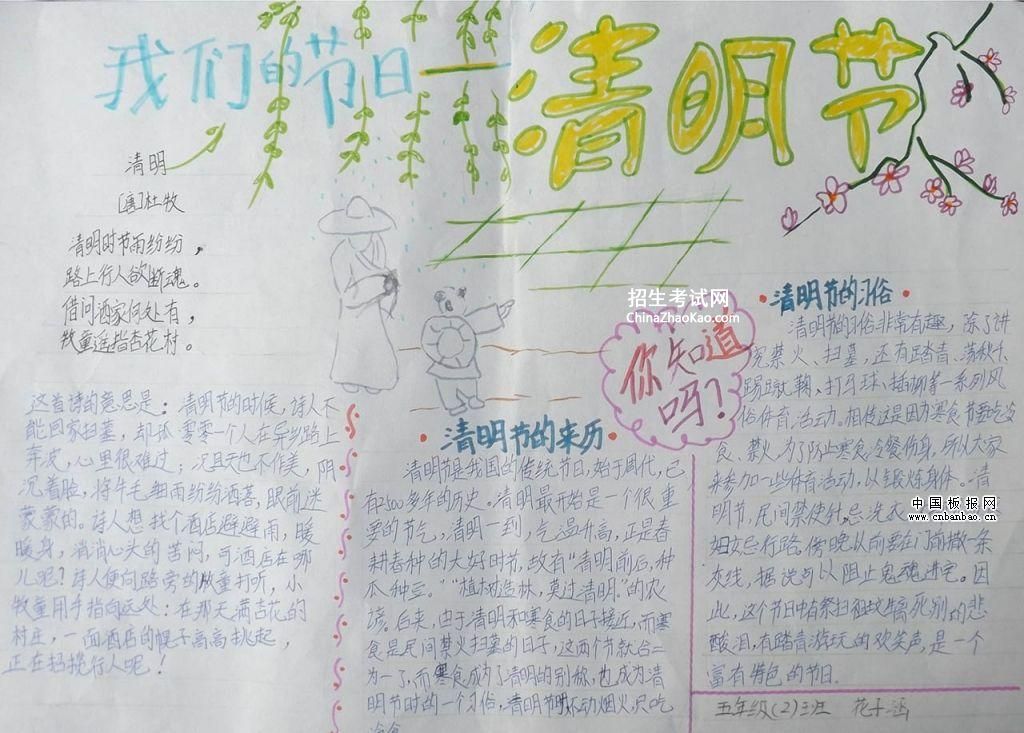 我们的节日——清明节
清明
[唐]杜牧
清明时节雨纷纷，
路上行人欲断魂。
借问酒家何处有，
牧童遥指杏花村。
这首诗的意思是：清明节的时候，诗人不
能回家扫墓，却孤零零一个人在异乡路上
奔波，心里很难过；况且天也不作美，阴
沉着脸，将牛毛细雨纷纷洒落，眼前迷
蒙蒙的。诗人想找个酒店避避雨，暖
暖身，消消心头的苦闷，可酒店在哪
儿呢？诗人便向路旁的牧童打听，小
牧童用手指向远处：在那天满杏花的
村庄，一面酒店的幌子高高挑起，
正在招揽行人呢！
招生考试网
ChinaZhaoKao.com
你知道
吗？
清明节的来历
清明节是我国的传统节日，始于周代，已
有2500多年的历史。清明最开始是一个很重
要的节气，清明一到，气温升高，正是春
耕春种的大好时节，故有“清明前后，种
瓜种豆。”“植树造林，莫过清明”的农
谚。后来，由于清明和寒食的日子接近，而寒
食是民间禁火扫墓的日子，这两个节就合二
为一了，而寒食成为了清明的别称，也成为清
明节时的一个习俗，清明节时不动烟火，只吃
清明节的习俗
清明节习俗非常有趣，除了讲
究禁火、扫墓，还有踏青、荡秋千、
踢蹴鞠、打马球、插柳等一系列风
俗体育活动。相传这是因为寒食节要吃冷
食、禁火，为了防止寒食冷餐伤身，所以大家
来参加一些体育活动，以锻炼身体。清
明节，民间禁使针，忌洗衣
中国板报网
www.cnbanbao.cn
妇女忌行路。傍晚以前要在门前撒一条
灰线，据说可以阻止鬼魂进宅。因
此，这个节日中有祭扫祖坟生离死别的悲
酸泪，有踏青游玩的欢笑声，是一个
富有特色的节日。
五年级(2)班 花子涵